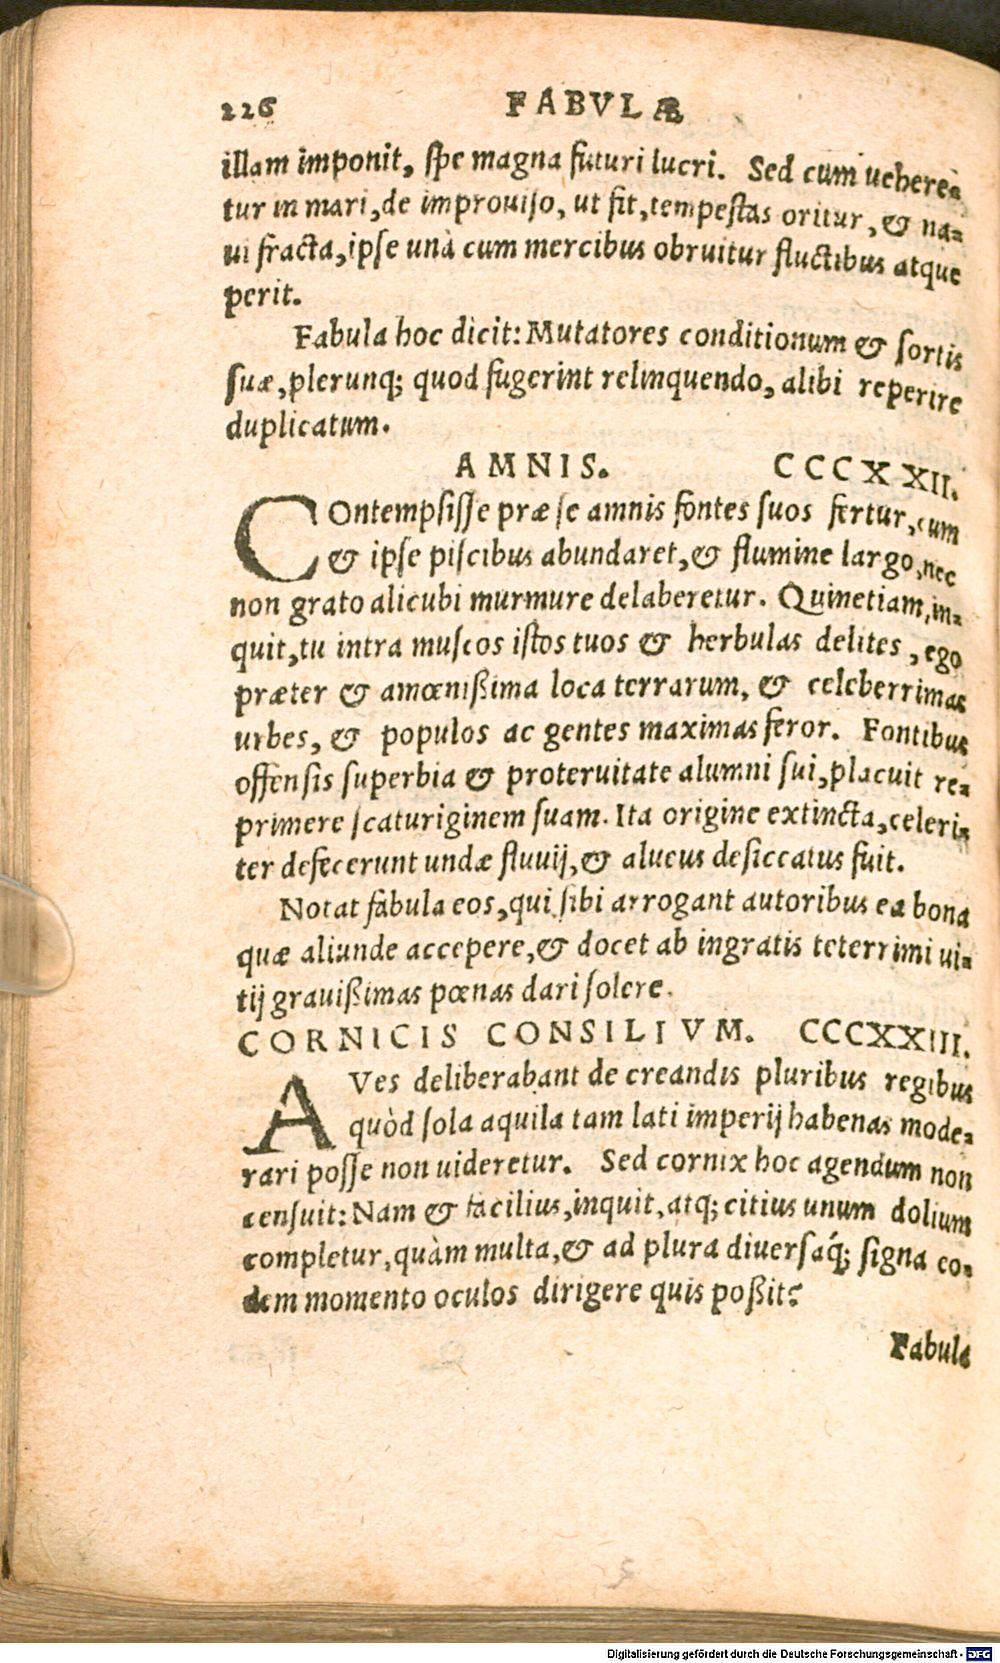 226 FABVLÆ
illam imponit, spe magna futuri lucri. Sed cum uehere-
tur in mari, de improuiso, ut fit, tempestas oritur, & na-
ui fracta, ipse unà cum mercibus obruitur fluctibus atque
perit.
Fabula hoc dicit: Mutatores conditionum & sortis
suæ, plerunq; quod fugerint relinquendo, alibi reperire
duplicatum.
AMNIS. CCCXXII.
COntempsisse præ se amnis fontes suos fertur, cum
& ipse piscibus abundaret, & flumine largo, nec
non grato alicubi murmure delaberetur. Quinetiam, in-
quit, tu intra muscos istos tuos & herbulas delites, ego
præter & amœnißima loca terrarum, & celeberrimas
urbes, & populos ac gentes maximas feror. Fontibus
offensis superbia & proteruitate alumni sui, placuit re-
primere scaturiginem suam. Ita origine extincta, celeri-
ter defecerunt undæ fluuij, & alueus desiccatus fuit.
Notat fabula eos, qui sibi arrogant autoribus ea bona
quæ aliunde accepere, & docet ab ingratis teterrimi ui-
tij grauißimas pœnas dari solere.
CORNICIS CONSILIVM. CCCXXIII.
AVes deliberabant de creandis pluribus regibus
quòd sola aquila tam lati imperij habenas mode-
rari posse non uideretur. Sed cornix hoc agendum non
censuit: Nam & facilius, inquit, atq; citius unum dolium
completur, quàm multa, & ad plura diuersáq; signa eo-
dem momento oculos dirigere quis poßit?
Fabula
Digitalisierung gefördert durch die Deutsche Forschungsgemeinschaft - DFG